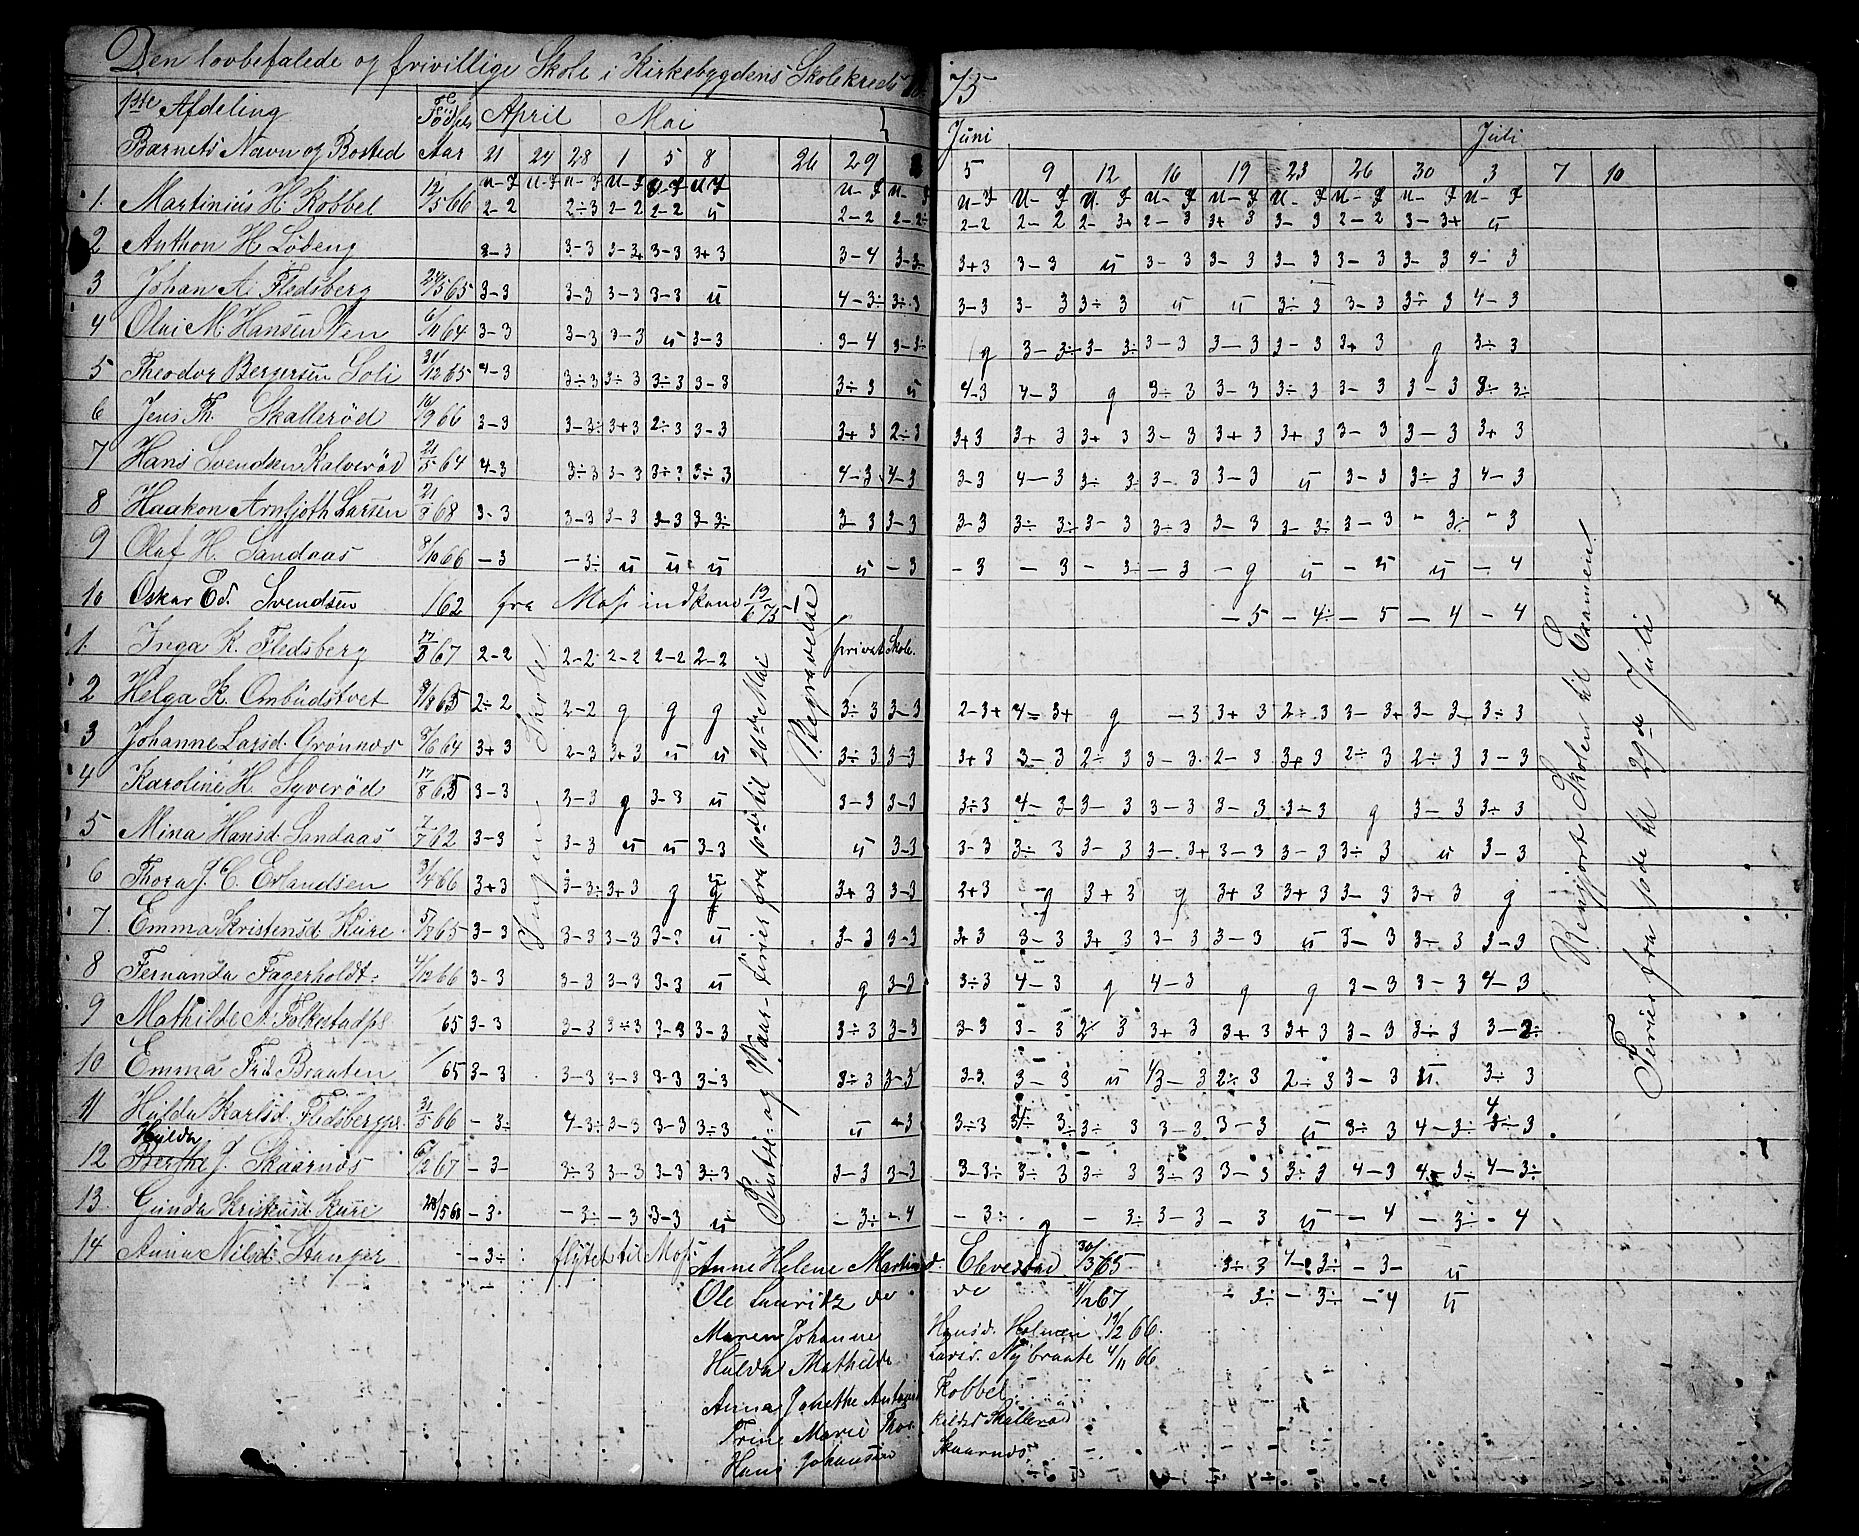 Den lovbefalede og frivillige Skole i Kirkebygdens Skolekreds 18 75
1ste Afdeling Fødsels April Mai Juni Juli
Barnets Navn og Bosted Aar 21 24 28 1 5 8 26 29 5 9 12 16 19 23 26 30 3 7 10
1. Martinius H. Kobbel 12/5 66 2-2 2÷3 2-2 2-2 u 2-2 2-2÷ 2-2 2-2 2-3+ 2-3 3+3 3-3 2-2 3-3+ u
2 Anthon H Lødeng 3-3 3-3 3-3+ 3-3 3+3 3-4 3-3÷ 3+3 3-3 u 3-3 3-3 3-3 3-3 3-3 3-3
3 Johan A. Fledsberg 24/5 65 3-3 3-3 3-3 3-3 u 4-3÷ 3÷3 3-3 3-3 3÷3 u u 3÷3 3-3 3÷3 4-3
4 Olai M. Hansen Ven 6/11 64 3-3 3-3 3-3 u 3-3 3-4 3-3÷ g 3-3÷ 3-3÷ 3-3 3-3 3-3 3+3 g 3÷3
5 Theodor Bergersen Soli 31/12 65 4-3 3÷3 3÷3 3÷3 3-3 3÷3 u 4-3 4-3 g 3÷3 3-3 3÷3 3-3 3-3 3-3÷
6 Jens Th. Skallerød 16/9 66 3-3 3-3÷ 3+3 2÷3 3-3 3+3 2÷3 3+3 3+3 3+3 3-3 3+3 3+3 3-3 3-3 3+3
7 Hans Svendsen Kalverød 21/5 64 4-3 3÷3 3-3 3÷3 3÷3 4-3 4-3 3-3 4-3 3÷3 3-3 3-3 u 3-3 3÷3 4-3
8 Haakon Arnljoth Larsen 21/8 68 3-3 3-3 3-3 3-3 3-3÷ 3-3 3-3 3-3 3÷3÷ 3-3 3÷3 3-3 3-3÷ 3-3 -3÷ -3
9 Olaf H. Sandaas 8/10 66 -3 -3÷ u u u u -3 -3 -3 -3÷ -3 -g u -u u -4
10 Oskar Ed. Svendsen /62 fra Moss indkom 19/6 75 -5 -4÷ -5 -4 -4
1. Inga K. Fledsberg 17/3 67 2-2 2-2 2-2 2-2 2-2 privat Skole.
2 Helga K. Ombudstvet 2÷2 2-2 g g g 3÷3 3-3 2-3+ 4-3+ g -3 3+3 2÷3 3-3+ 3-3 3÷3
3 Johanne Larsd. Grønnøs 8/6 64 3+3 2-3 3+3 u u 3÷3 3-3 3+3 3-3 2÷3 3-3 2-3 3+3 2÷3 2÷3 3-3
4 Karoline H. Syverød 17/8 65 3-3 3-3 g 3-3 u 3-3 3-3 3÷3 4-3 3-3 3-3 3-3 3÷3 g 3-3 3÷3
5 Mina Hansd. Sandaas 1/7 62 3-3 3-3 u u 3-3 u 3-3 3-3 3÷3 3-3 3-3+ 3-3 3-3 3÷3 u 3-3
6 Thora J. C. Erlandsen 3/4 66 3+3 3-3÷ 3+3 g g 3+3 3-3 2+3 g 3+3 g 3+3 3+3 3-3 3-3 g
7. Emma Kristensd. Kure 3-3 3-3 3-3 3-3 u 3-3 3-3 3+3 3-3 3+3 3-3 3-3 u 3-3 3-3 3-3
8 Fernanda Fagerholdt 4/12 66 3-3 3-3 3-3 3-3 u g 3-3 3÷3 4-3 g 4-3 g g 3-3 3-3 4-3
9 Mathilde A. Folkestadpl. /65 3-3 3-3 3÷3 3-3 3-3 3÷3 3-3 3-3 3-3 2÷3 3+3 3+3 3+3 3-3 3÷3 3-2÷
10 Emma Frd. Braaten /65 3-3 3-3 3-3 3-3 3-3 3÷3 3-3 3-3 3-3 u 4/3-3 2÷3 2÷3 3-3 u 3÷3
11 Hulda Karlsd. Fledsbergpl. 31/5 66 -3÷ 4-3÷ 3-3 3-3 3÷3 u -3 3÷3 3÷ 3÷3 3-3 3-3 u 3÷3 4-3÷ 3-3
12 Hulda J. Skaarnøs 6/2 67 -3- 3÷3 3-3 3-3 3÷3 3-3 3-3 3-3÷ 3÷3 3÷3 3÷3 3-3 3÷3 4-3 4-3÷ 4-3÷
13. Gunda Kristensd. Kure 28/5 68 -3- -3÷ -3 3-3 u -3÷ -4 -3÷ g -3÷ 3-3 -3 u -4 -3÷ -4
14 Anna Nilsd. Stanger -3÷ flyttet til Moss.
Ingen Skole
Pintse- og Vaar-Ferier fra 10de til 26de Mai
Begravelse
Rengjort Skolen til Examen
Ferier fra 10de til 29de Juli
Anne Helene Martinsd. Elvestad 30/3 65 3÷3 4-3÷ -3- u
Ole Lauritz do do 1/12 67 -3÷ -3÷ -4 u
Maren Johanne Hansd. Holmen 19/2 66.
Hulda Mathilde Larsd. Nybraate 4/11 66
Anna Josethe Kobbel
Trine Marie Skallerød
Hans Johansen Skaarnøs